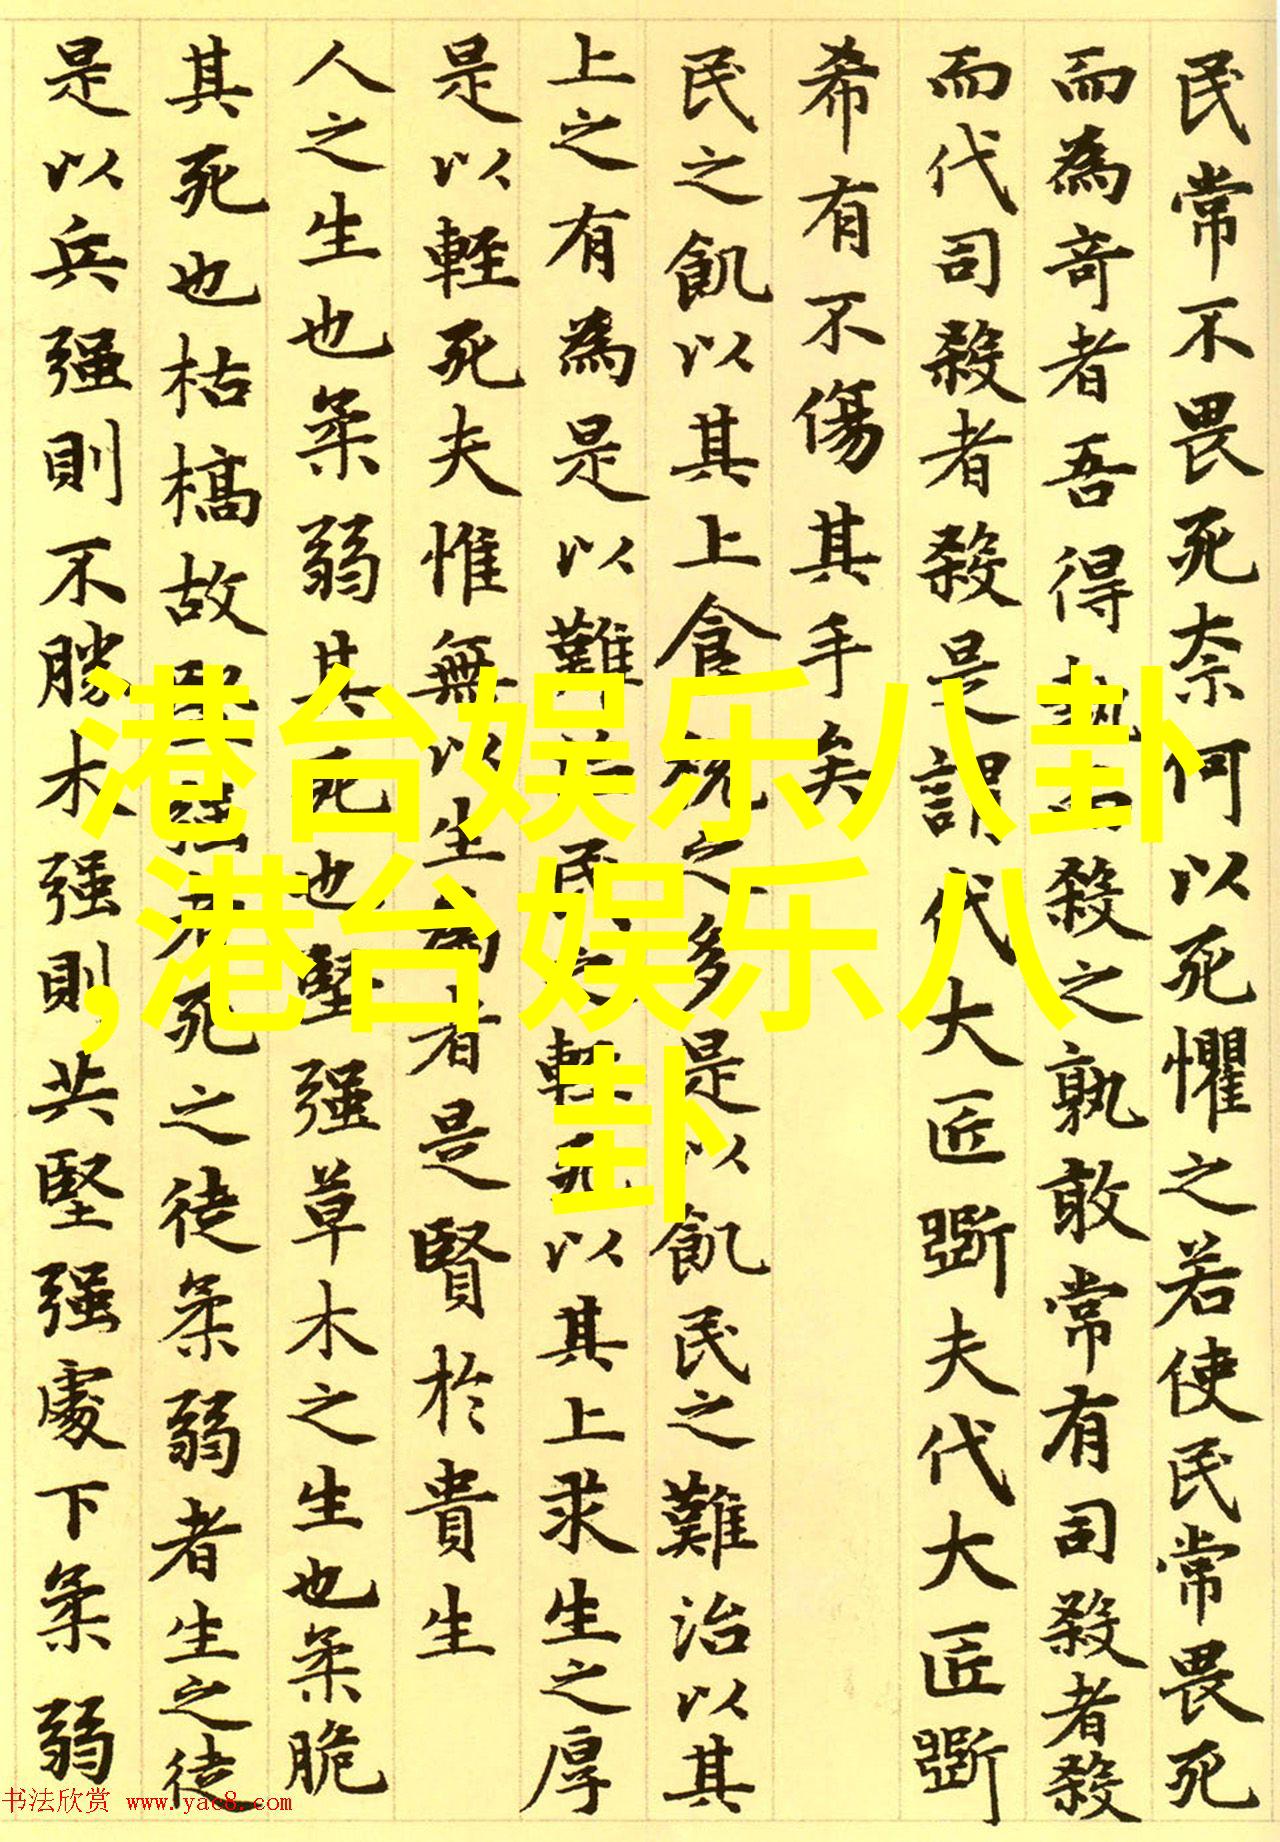 民常不畏死柰何以死懼之若使民常畏死
而為竒者吾得執而殺之孰敢常有司殺者殺
而代司殺者殺是謂代大匠斵夫代大匠斵
希有不傷其手矣
民之飢以其上食稅之多是以飢民之難治以其
上之有為是以難治民之輕死以其上求生之厚
是以輕死夫惟無以生為者是賢於貴生
人之生也柔弱其死也堅强草木之生也柔脆
其死也枯槁故堅强者死之徒柔弱者生之徒
是以兵强則不勝木强則共堅强處下柔弱
港台娱乐八卦
,港台娱乐八
卦
书法欣赏 www.yac8.com